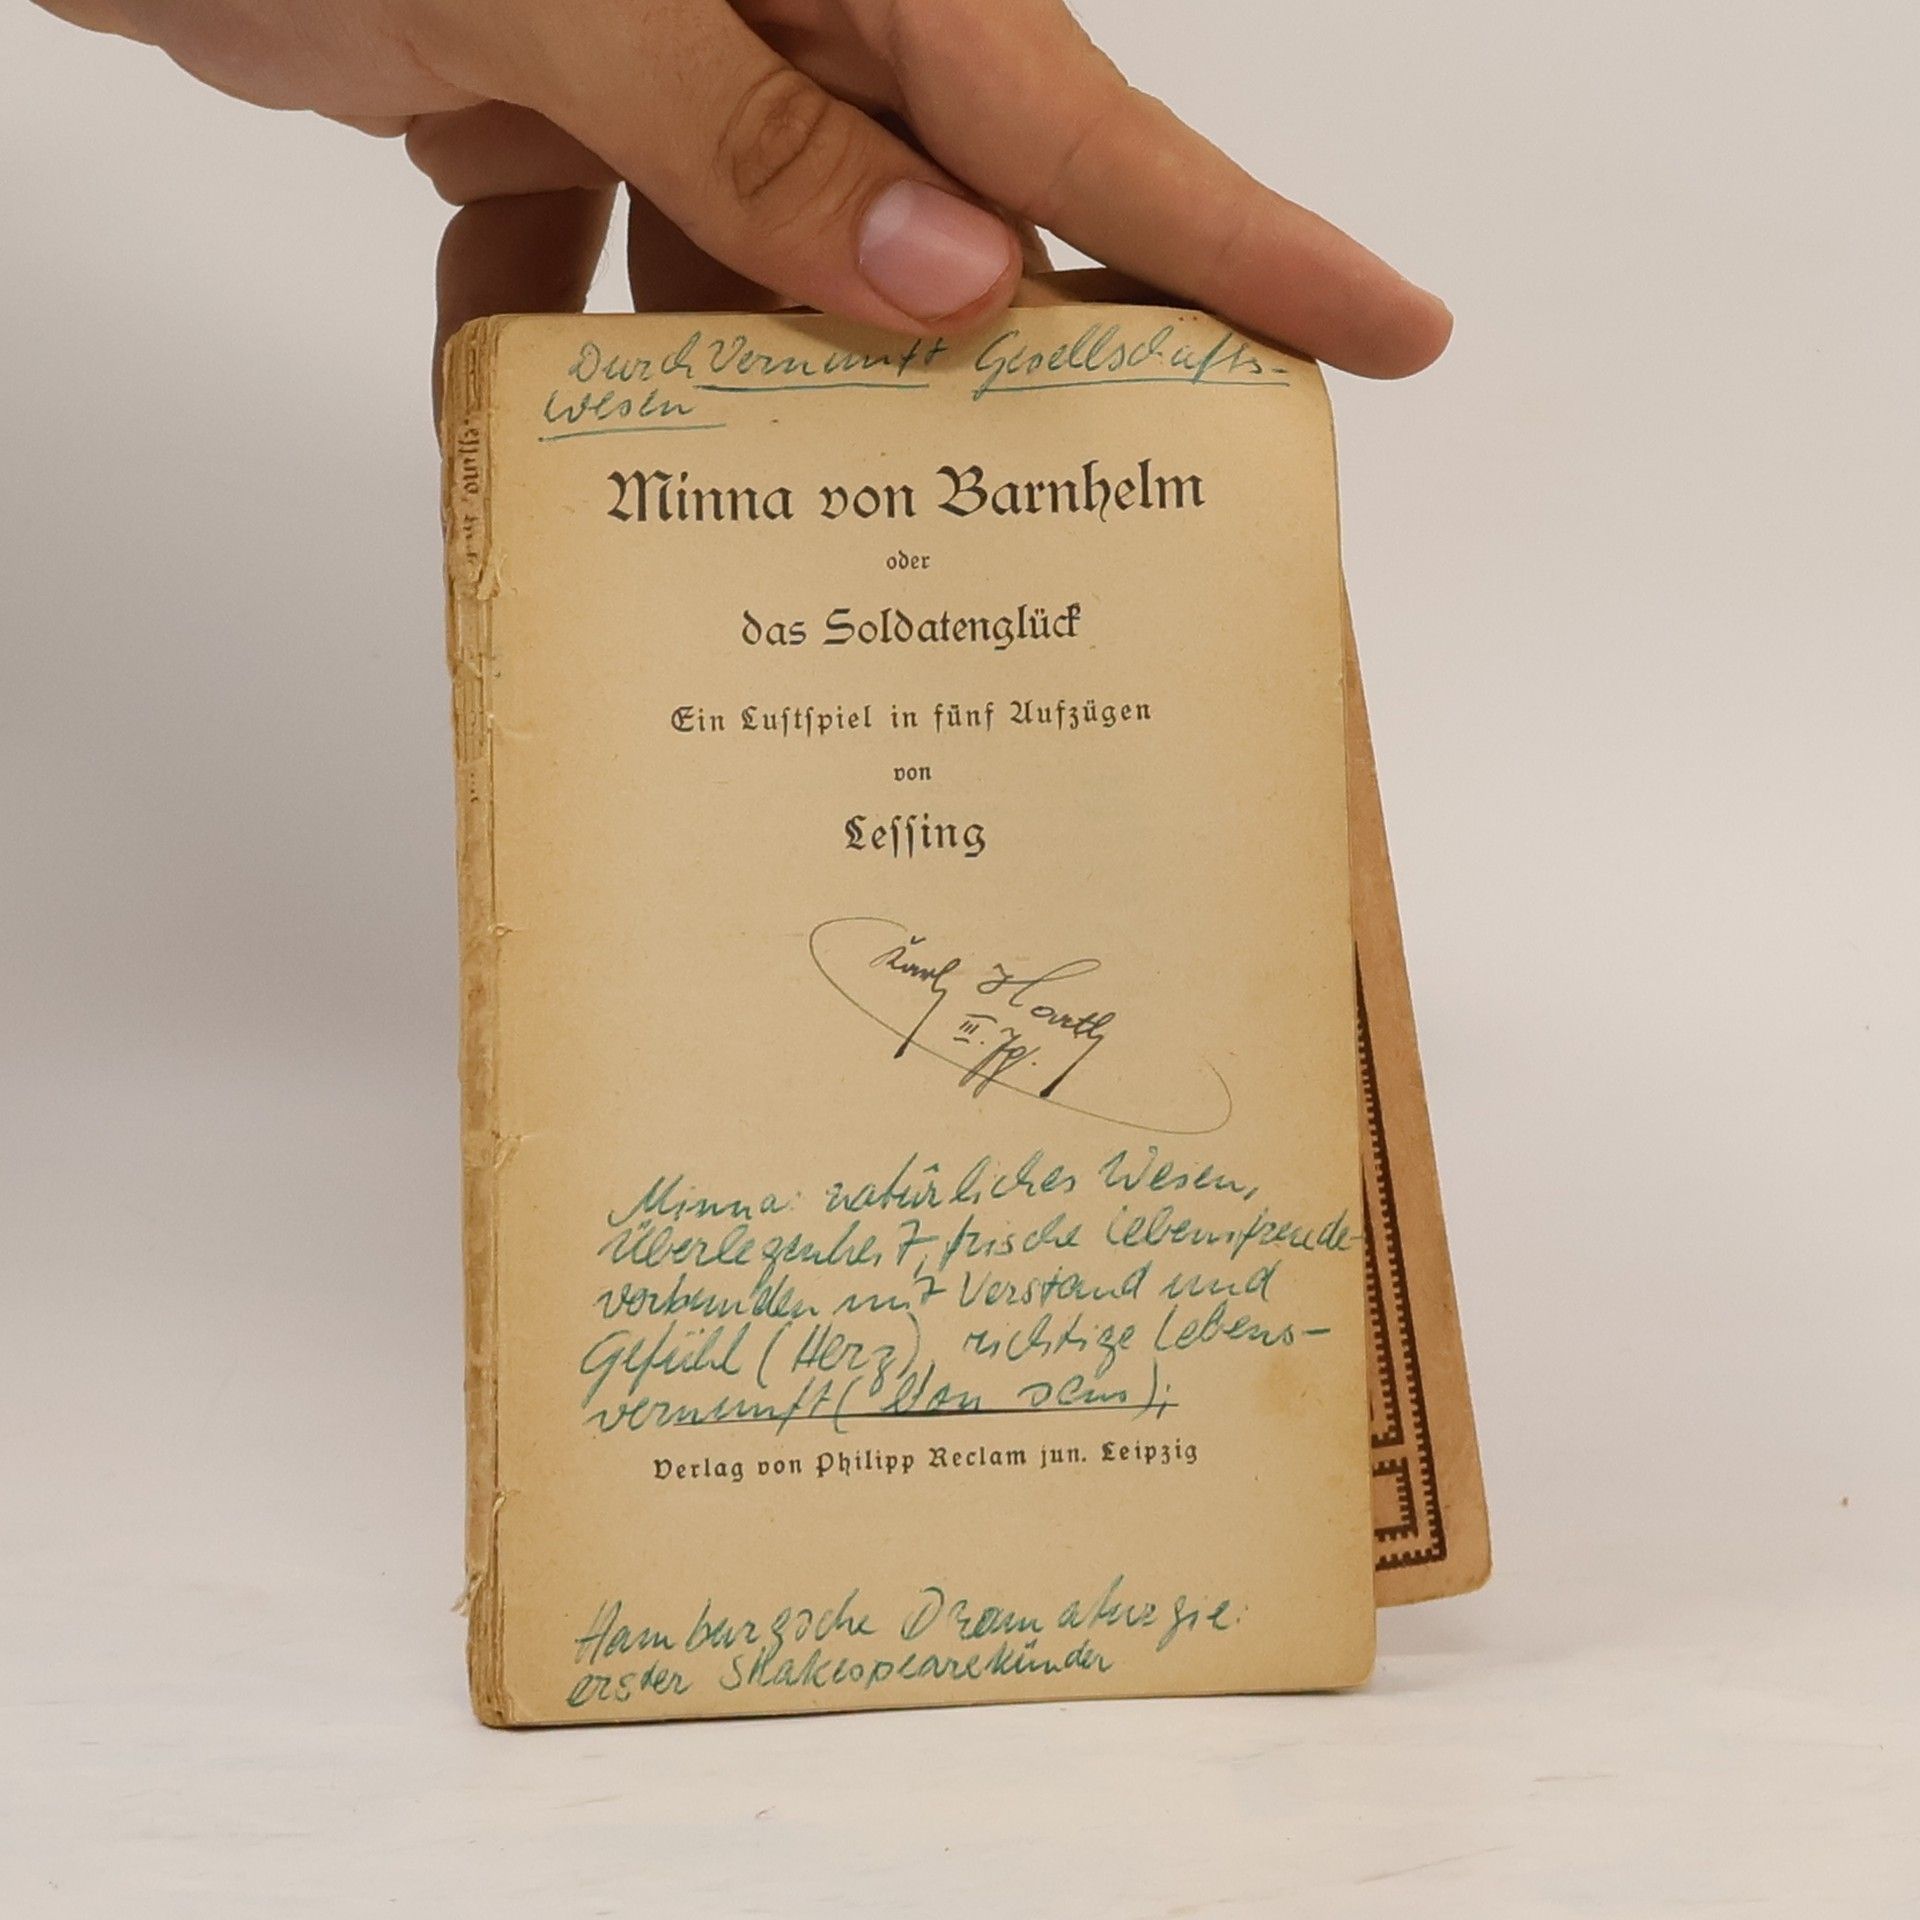 Durch Vernunft Gesellschafts-
wesen
Minna von Barnhelm
oder
das Soldatenglück
Ein Luſtſpiel in fünf Aufzügen
von
Leſſing
Karl
III. Jg.
Minna: natürliches Wesen,
Überlegenheit, frische Lebensfreude-
verbunden mit Verstand und
Gefühl (Herz), richtige Lebens-
vernunft (bon sens);
Verlag von Philipp Reclam jun. Leipzig
Hamburgsche Dramaturgie:
erster Shakespearekünder